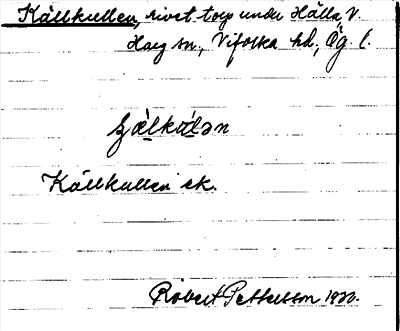 Källkullen, rivet torp under Hälla, V.
Harg sn., Vifolka hd, Ög. l.
Källkullen ek.
Robert Pettersson 1930.